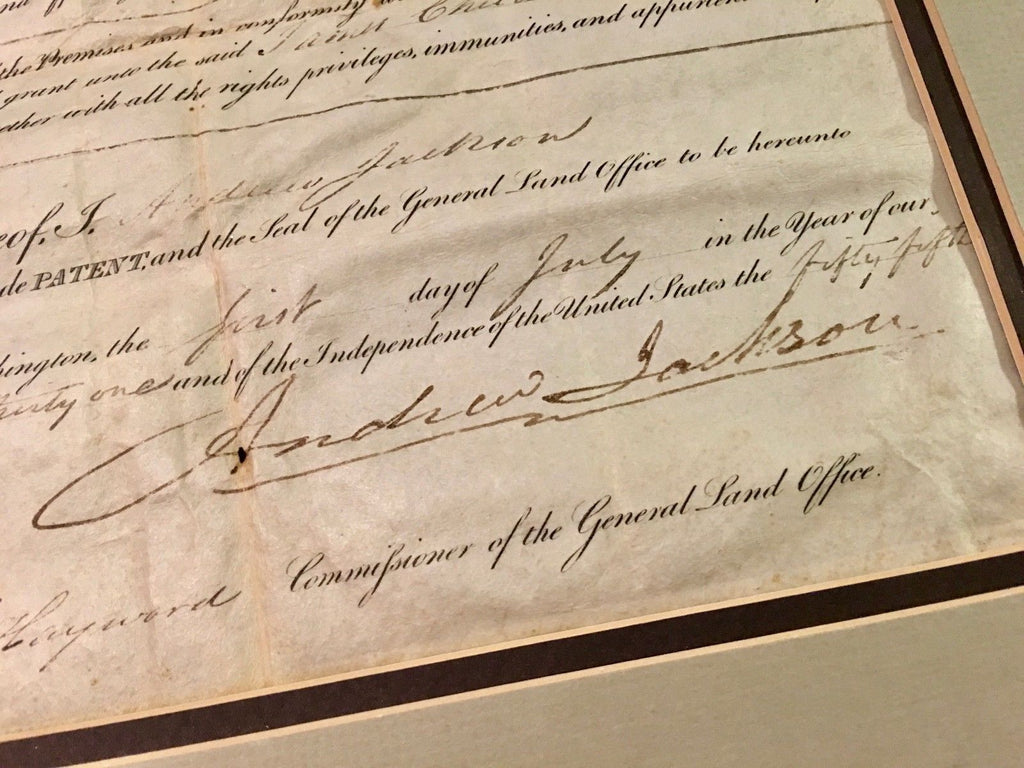 the Premises and in conformity
grant unto the said
with all the rights privileges, immunities, and
of, I, Andrew Jackson
PATENT, and the Seal of the General Land Office to be hereunto
the first day of July in the Year of our
one and of the Independence of the United States the fifty fifth
Andrew Jackson
Hayward Commissioner of the General Land Office.